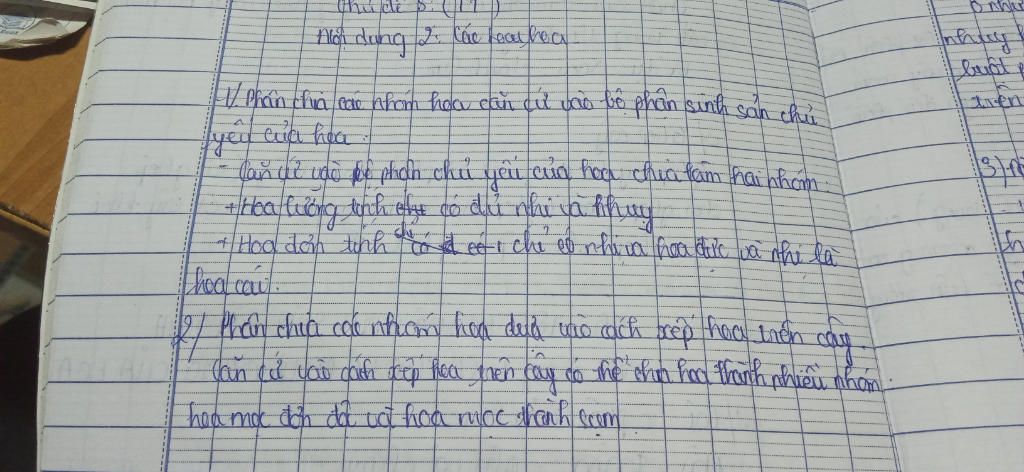 Chủ đề 5: (TT)
Nội dung 2: Các loại hoa
1/ Phân chia các nhóm hoa căn cứ vào bộ phận sinh sản chủ
yếu của hoa.
- Căn cứ vào bộ phận chủ yếu của hoa chia làm hai nhóm.
+ Hoa lưỡng tính có đủ nhị và nhụy
+ Hoa đơn tính chỉ có 1 chỉ có nhị là hoa đực và nhị là
hoa cái.
2/ Phân chia các nhóm hoa dựa vào cách xếp hoa trên cây.
Căn cứ vào cách xếp hoa trên cây có thể chia hoa thành nhiều nhóm.
hoa mọc đơn độ và hoa mọc thành cụm
nhụy
3)